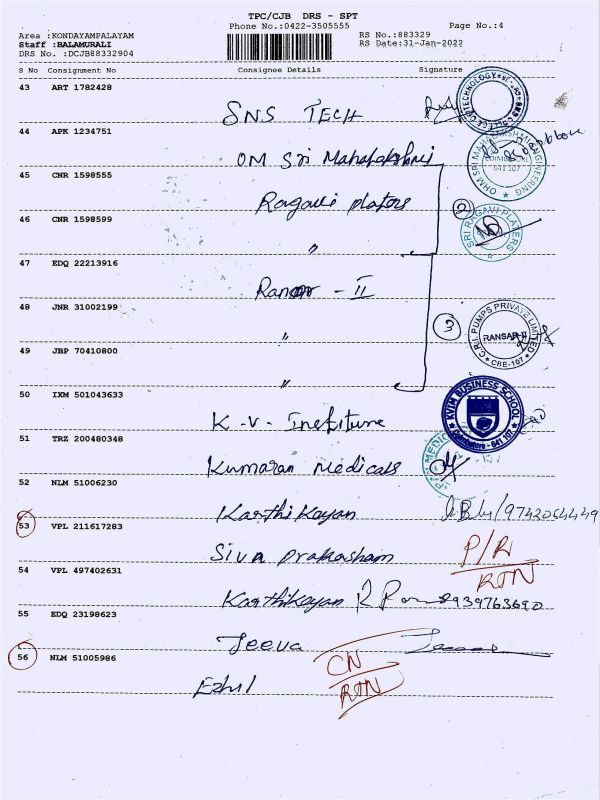 TPC/CJB DRS - SPT
Phone No.:0422-3505555 Page No.:4
Area :KONDAYAMPALAYAM RS No.:883329
Staff :BALAMURALI RS Date:31-Jan-2022
DRS No. :DCJB88332904
S No Consignment No Consignee Details Signature
43 ART 1782428
SNS TECH
44 APK 1234751
OM Sri Mahalakshmi
45 CNR 1598555
Ragavi platers
46 CNR 1598599
" 2
47 EDQ 22213916
Ransar - II
48 JNR 31002199
" 3
49 JBP 70410800
"
50 IXM 501043633
K-V-
51 TRZ 200480348
Kumaran medicals
52 NLM 51006230
Karthikayan /9742064449
53 VPL 211617283
Siva prakasham P/R
RTN
54 VPL 497402631
Karthikayan 8939763690
55 EDQ 23198623
Jeeva
56 NLM 51005986
Ezhil CN
RTN
SNS COLLEGE OF TECHNOLOGY
OHM SRI MAHALAKSHMI ENGINEERING
COIMBATORE
641 107
SRI RAGAVI PLATERS
C.R.I. PUMPS PRIVATE LIMITED
RANSAR-II
CBE-107
KVIM BUSINESS SCHOOL
Coimbatore - 641 107
MEDIC